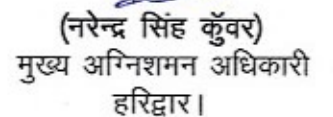 (नरेन्द्र सिंह कुँवर)
मुख्य अग्निशमन अधिकारी
हरिद्वार।